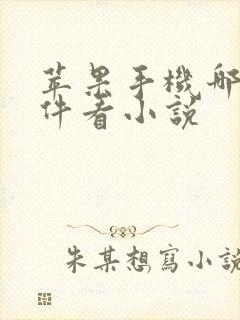 苹果手機那
件看小説
朱某想寫小說